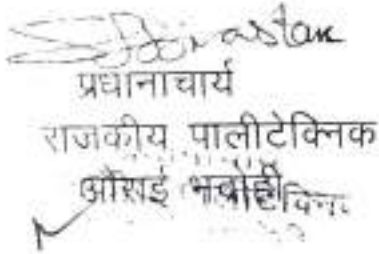 प्रधानाचार्य
राजकीय पालीटेक्निक
औराई भदोही